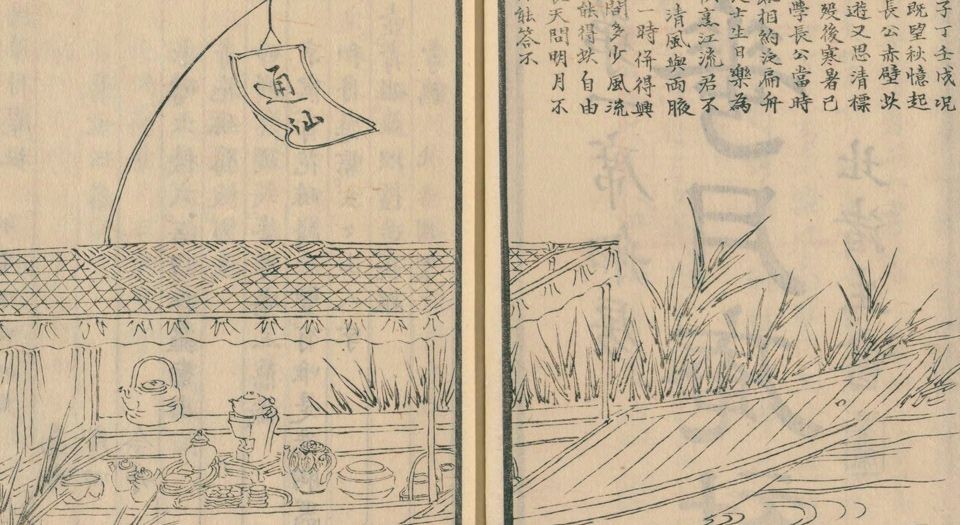 子丁壬戌况
既望秋憶起
長公赤壁此
遊又思清標
後寒暑已
學長公當時
相約泛扁舟
士生日樂為
江流君不
清風與兩腋
一時併得興
問多少風流
能得此自由
天問明月不
能答不
通仙